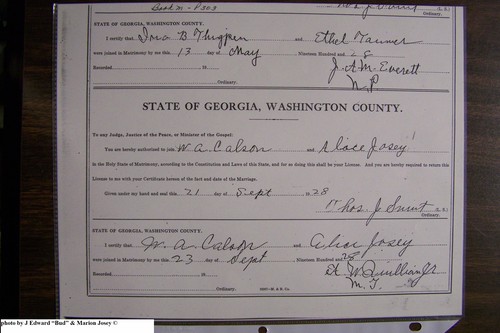 Book M - P503
Ordinary.
STATE OF GEORGIA, WASHINGTON COUNTY.
I certify that Ira B Thigpen and Ethel Tanner
were joined in Matrimony by me this 13 day of May Nineteen Hundred and 28
Recorded J. A. M. Everett
Ordinary. N. P
STATE OF GEORGIA, WASHINGTON COUNTY.
To any Judge, Justice of the Peace, or Minister of the Gospel:
You are hereby authorized to join W. A. Calson and Alice Josey
in the Holy State of Matrimony, according to the Constitution and Laws of this State, and for so doing this shall be your License. And you are hereby required to return this
License to me with your Certificate hereon of the fact and date of the Marriage.
Given under my hand and seal this 21 day of Sept 1928
Thos. J. (L. S.)
Ordinary.
STATE OF GEORGIA, WASHINGTON COUNTY.
I certify that W. A. Calson and Alice Josey
were joined in Matrimony by me this 23 day of Sept Nineteen Hundred and 28
Recorded W. Quillian Jr
Ordinary. M. G.
photo by J Edward "Bud" & Marion Josey ©